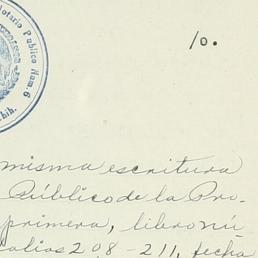 Notario Publico Num. 6
Chih.
10.
misma escritura
Público de la Pro-
primera, libro nú-
folios 208-211, fecha